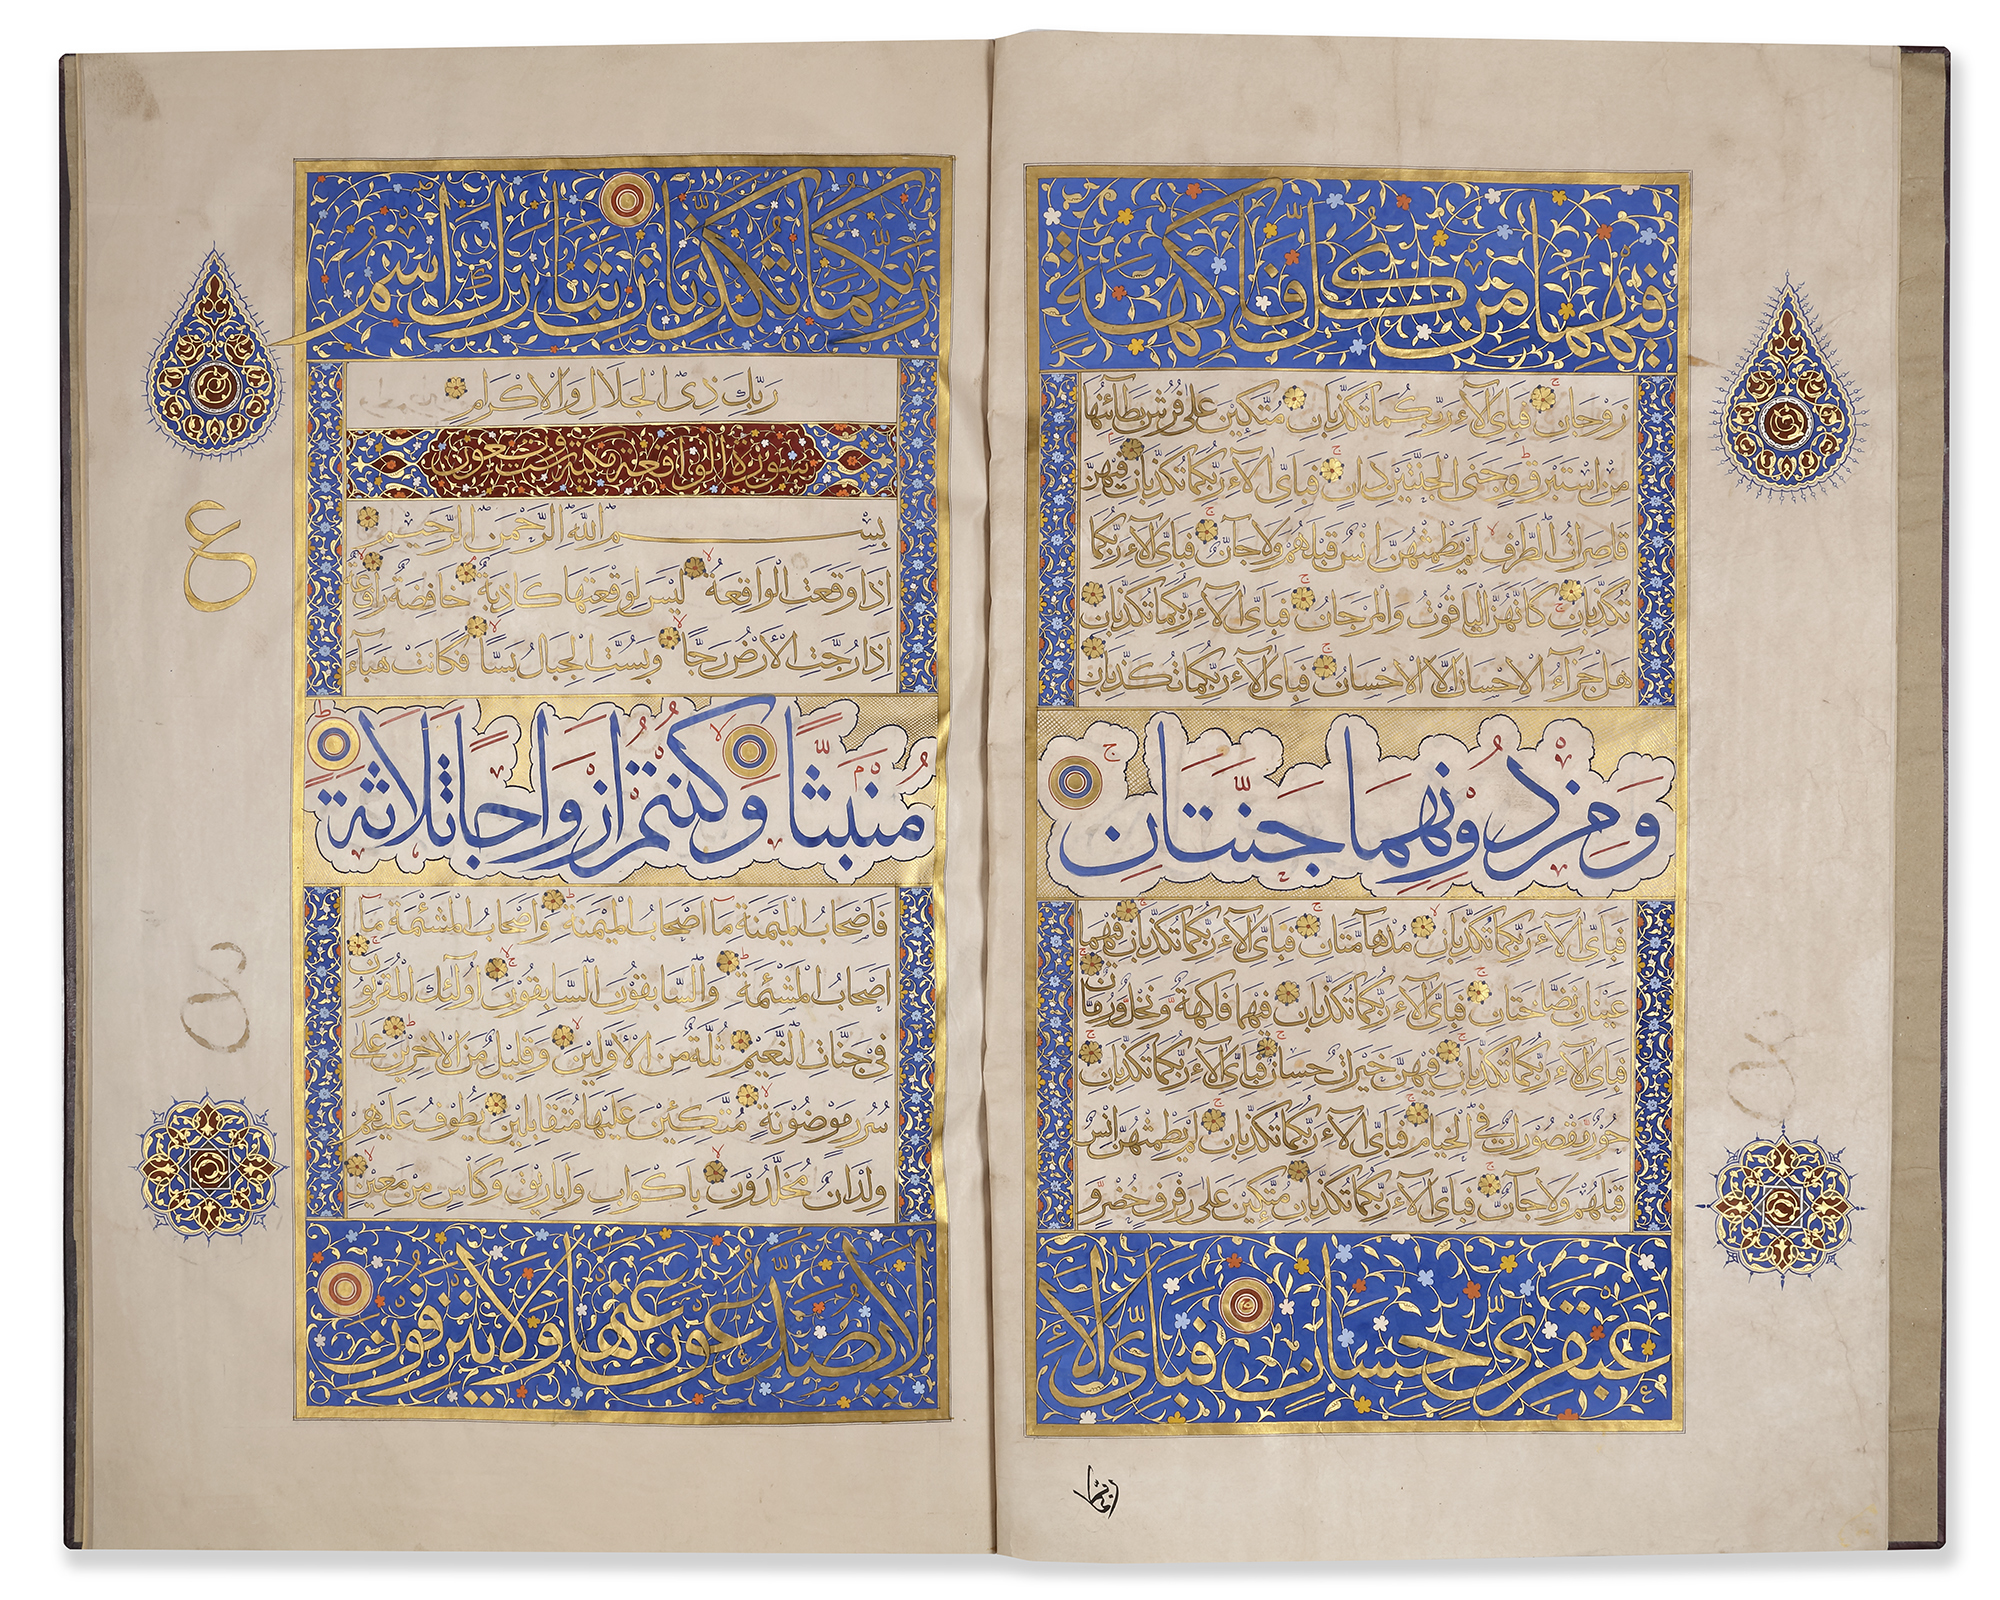 فِيهِمَا مِنْ كُلِّ فَاكِهَةٍ
زَوْجَانِ فَبِأَىِّ آلَاءِ رَبِّكُمَا تُكَذِّبَانِ مُتَّكِئِينَ عَلَى فُرُشٍ بَطَآئِنُهَا
مِنْ اِسْتَبْرَقٍ وَجَنَى الْجَنَّتَيْنِ دَانٍ فَبِأَىِّ آلَاءِ رَبِّكُمَا تُكَذِّبَانِ فِيهِنَّ
قَاصِرَاتُ الطَّرْفِ لَمْ يَطْمِثْهُنَّ اِنْسٌ قَبْلَهُمْ وَلَا جَآنٌّ فَبِأَىِّ آلَاءِ رَبِّكُمَا
تُكَذِّبَانِ كَاَنَّهُنَّ الْيَاقُوتُ وَالْمَرْجَانُ فَبِأَىِّ آلَاءِ رَبِّكُمَا تُكَذِّبَانِ
هَلْ جَزَآءُ الْاِحْسَانِ اِلَّا الْاِحْسَانُ فَبِأَىِّ آلَاءِ رَبِّكُمَا تُكَذِّبَانِ
وَمِنْ دُونِهِمَا جَنَّتَانِ
فَبِأَىِّ آلَاءِ رَبِّكُمَا تُكَذِّبَانِ مُدْهَآمَّتَانِ فَبِأَىِّ آلَاءِ رَبِّكُمَا تُكَذِّبَانِ فِيهِمَا
عَيْنَانِ نَضَّاخَتَانِ فَبِأَىِّ آلَاءِ رَبِّكُمَا تُكَذِّبَانِ فِيهِمَا فَاكِهَةٌ وَنَخْلٌ وَرُمَّانٌ
فَبِأَىِّ آلَاءِ رَبِّكُمَا تُكَذِّبَانِ فِيهِنَّ خَيْرَاتٌ حِسَانٌ فَبِأَىِّ آلَاءِ رَبِّكُمَا تُكَذِّبَانِ
حُورٌ مَقْصُورَاتٌ فِى الْخِيَامِ فَبِأَىِّ آلَاءِ رَبِّكُمَا تُكَذِّبَانِ لَمْ يَطْمِثْهُنَّ اِنْسٌ
قَبْلَهُمْ وَلَا جَآنٌّ فَبِأَىِّ آلَاءِ رَبِّكُمَا تُكَذِّبَانِ مُتَّكِئِينَ عَلَى رَفْرَفٍ خُضْرٍ وَ
عَبْقَرِىٍّ حِسَانٍ فَبِأَىِّ آلَاءِ
رَبِّكُمَا تُكَذِّبَانِ تَبَارَكَ اسْمُ
رَبِّكَ ذِى الْجَلَالِ وَالْاِكْرَامِ
سورة الواقعة مكية وست وتسعون
بِسْمِ اللهِ الرَّحْمٰنِ الرَّحِيمِ
اِذَا وَقَعَتِ الْوَاقِعَةُ لَيْسَ لِوَقْعَتِهَا كَاذِبَةٌ خَافِضَةٌ رَافِعَةٌ
اِذَا رُجَّتِ الْأَرْضُ رَجًّا وَبُسَّتِ الْجِبَالُ بَسًّا فَكَانَتْ هَبَآءً
مُنْبَثًّا وَكُنْتُمْ اَزْوَاجًا ثَلَاثَةً
فَاَصْحَابُ الْمَيْمَنَةِ مَآ اَصْحَابُ الْمَيْمَنَةِ وَاَصْحَابُ الْمَشْئَمَةِ مَآ
اَصْحَابُ الْمَشْئَمَةِ وَالسَّابِقُونَ السَّابِقُونَ اُولٰئِكَ الْمُقَرَّبُونَ
فِى جَنَّاتِ النَّعِيمِ ثُلَّةٌ مِنَ الْأَوَّلِينَ وَقَلِيلٌ مِنَ الْآخِرِينَ عَلَى
سُرُرٍ مَوْضُونَةٍ مُتَّكِئِينَ عَلَيْهَا مُتَقَابِلِينَ يَطُوفُ عَلَيْهِمْ
وِلْدَانٌ مُخَلَّدُونَ بِاَكْوَابٍ وَاَبَارِيقَ وَكَأْسٍ مِنْ مَعِينٍ
لَا يُصَدَّعُونَ عَنْهَا وَلَا يُنْزِفُونَ
ع